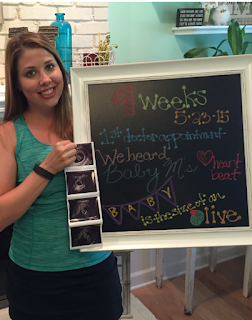 9 weeks
5-23-15
1st doctor appointment
We heard
Baby M's heart
beat
BABY
is the size of an
olive